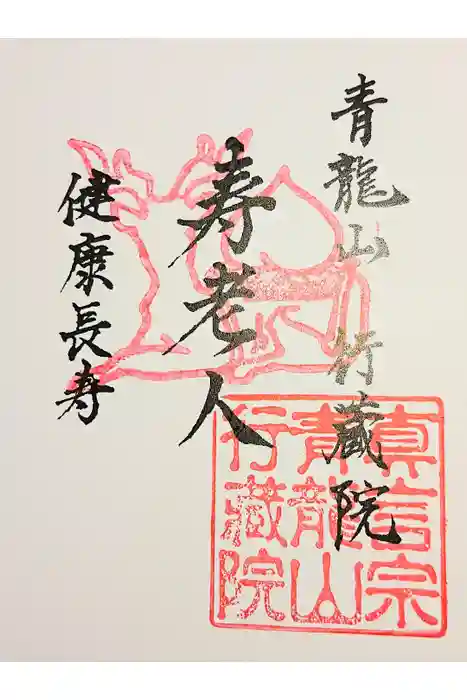 青龍山 行蔵院
寿老人
健康長寿
真言宗
青龍山
行藏院